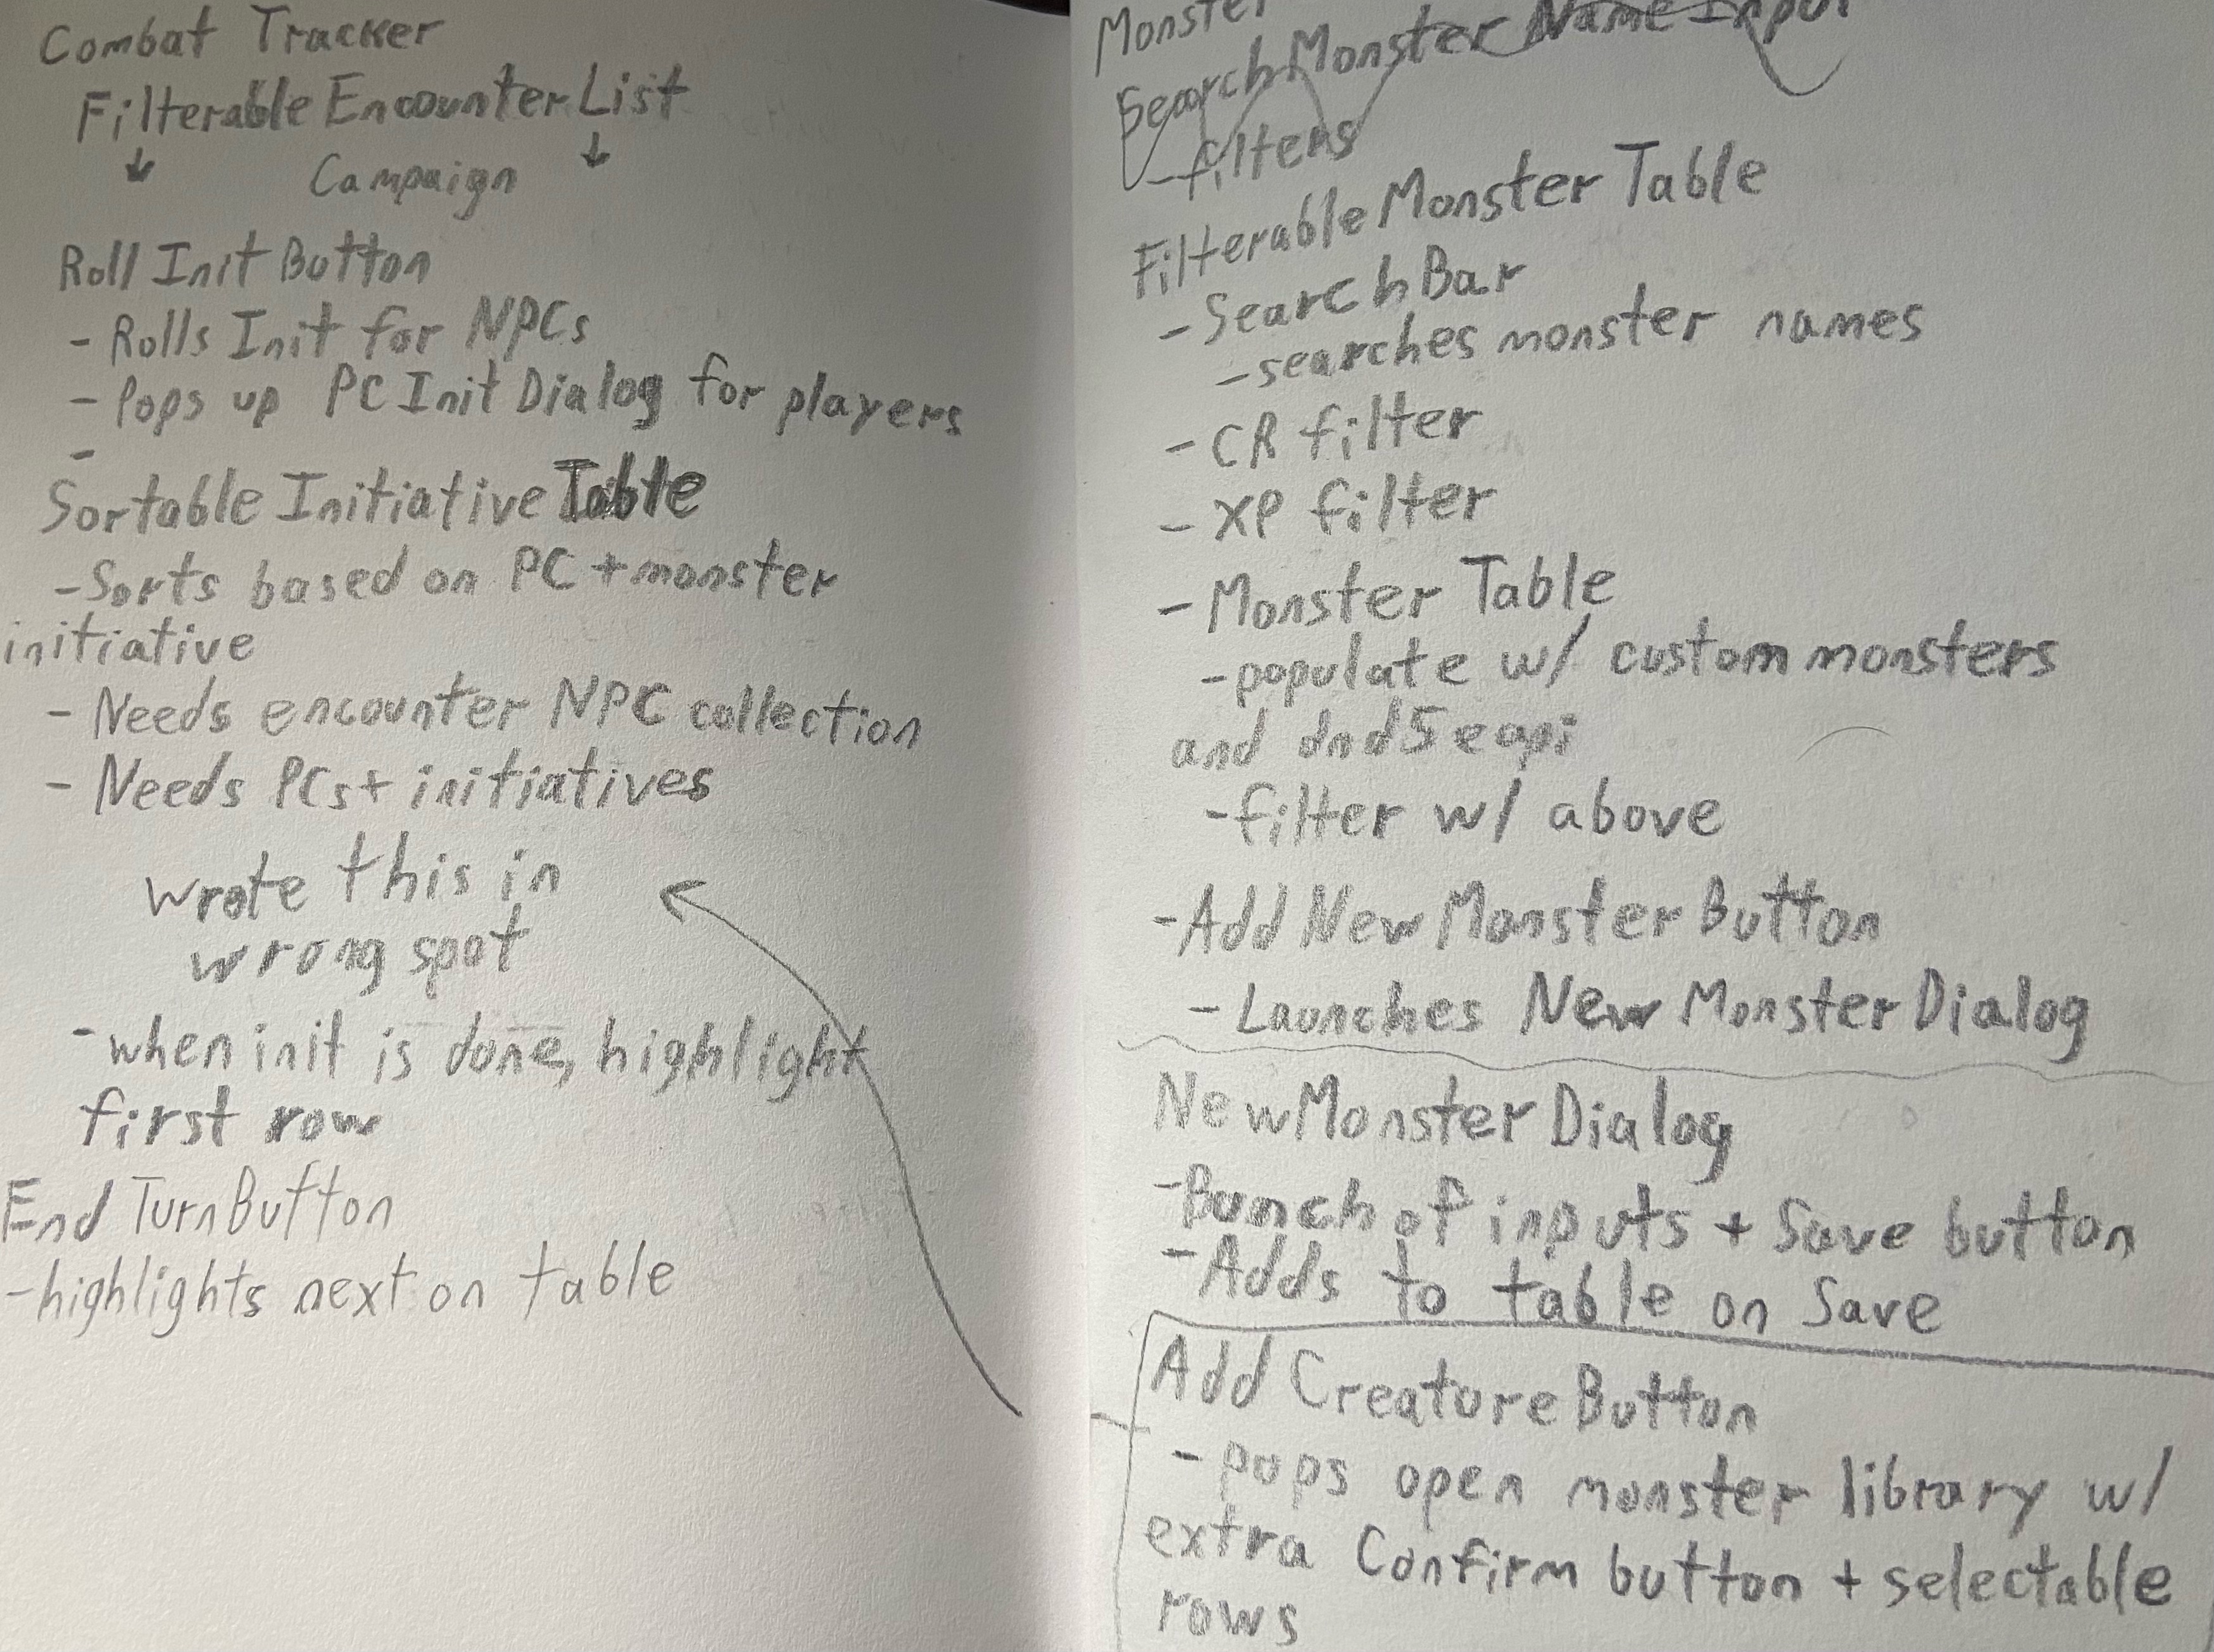 Combat Tracker
Filterable Encounter List
↓ Campaign ↓
Roll Init Button
- Rolls Init for NPCs
- Pops up PC Init Dialog for players
-
Sortable Initiative Table
- Sorts based on PC + monster
initiative
- Needs encounter NPC collection
- Needs PCs + initiatives
wrote this in
wrong spot
- when init is done, highlight
first row
End Turn Button
- highlights next on table
Monster
Search Monster Name Input
- filters
Filterable Monster Table
- Search Bar
- searches monster names
- CR filter
- XP filter
- Monster Table
- populate w/ custom monsters
and dnd5eapi
- filter w/ above
- Add New Monster Button
- Launches New Monster Dialog
New Monster Dialog
- Bunch of inputs + Save button
- Adds to table on Save
Add Creature Button
- pops open monster library w/
extra Confirm button + selectable
rows